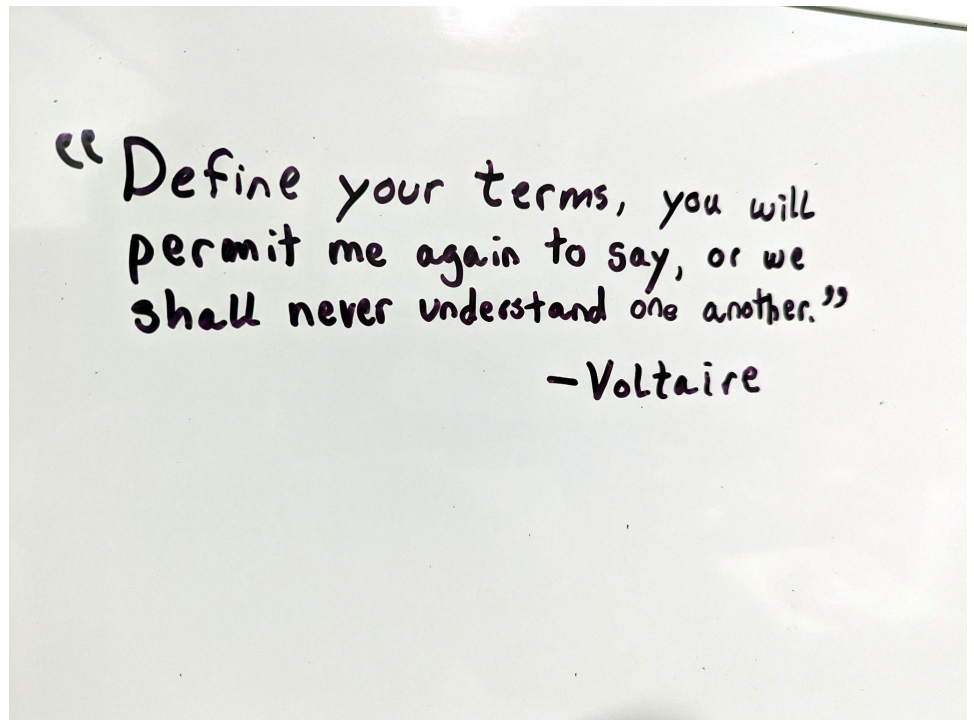 “Define your terms, you will
permit me again to say, or we
shall never understand one another.”
–Voltaire